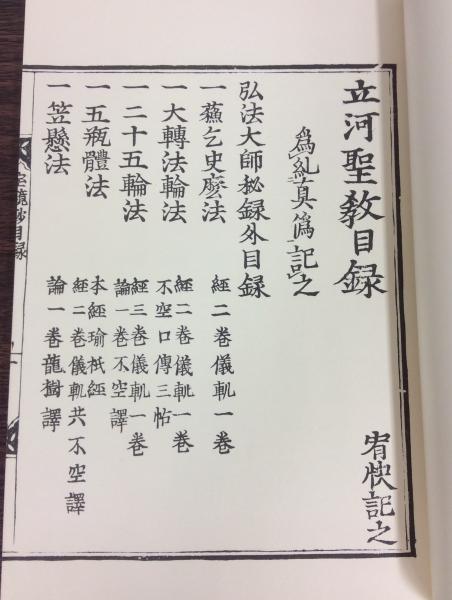 立河聖教目録 宥快記之
為糺真偽記之
弘法大師秘録外目録
一蘓乞史麼法 經二巻儀軌一巻
一大轉法輪法 經二巻儀軌一巻
不空口傳三帖
一二十五輪法 經三巻儀軌一巻
論一巻不空譯
一五瓶體法 本經瑜祇經
一笠懸法 經二巻儀軌共不空譯
論一巻龍樹譯
宝鏡鈔目録